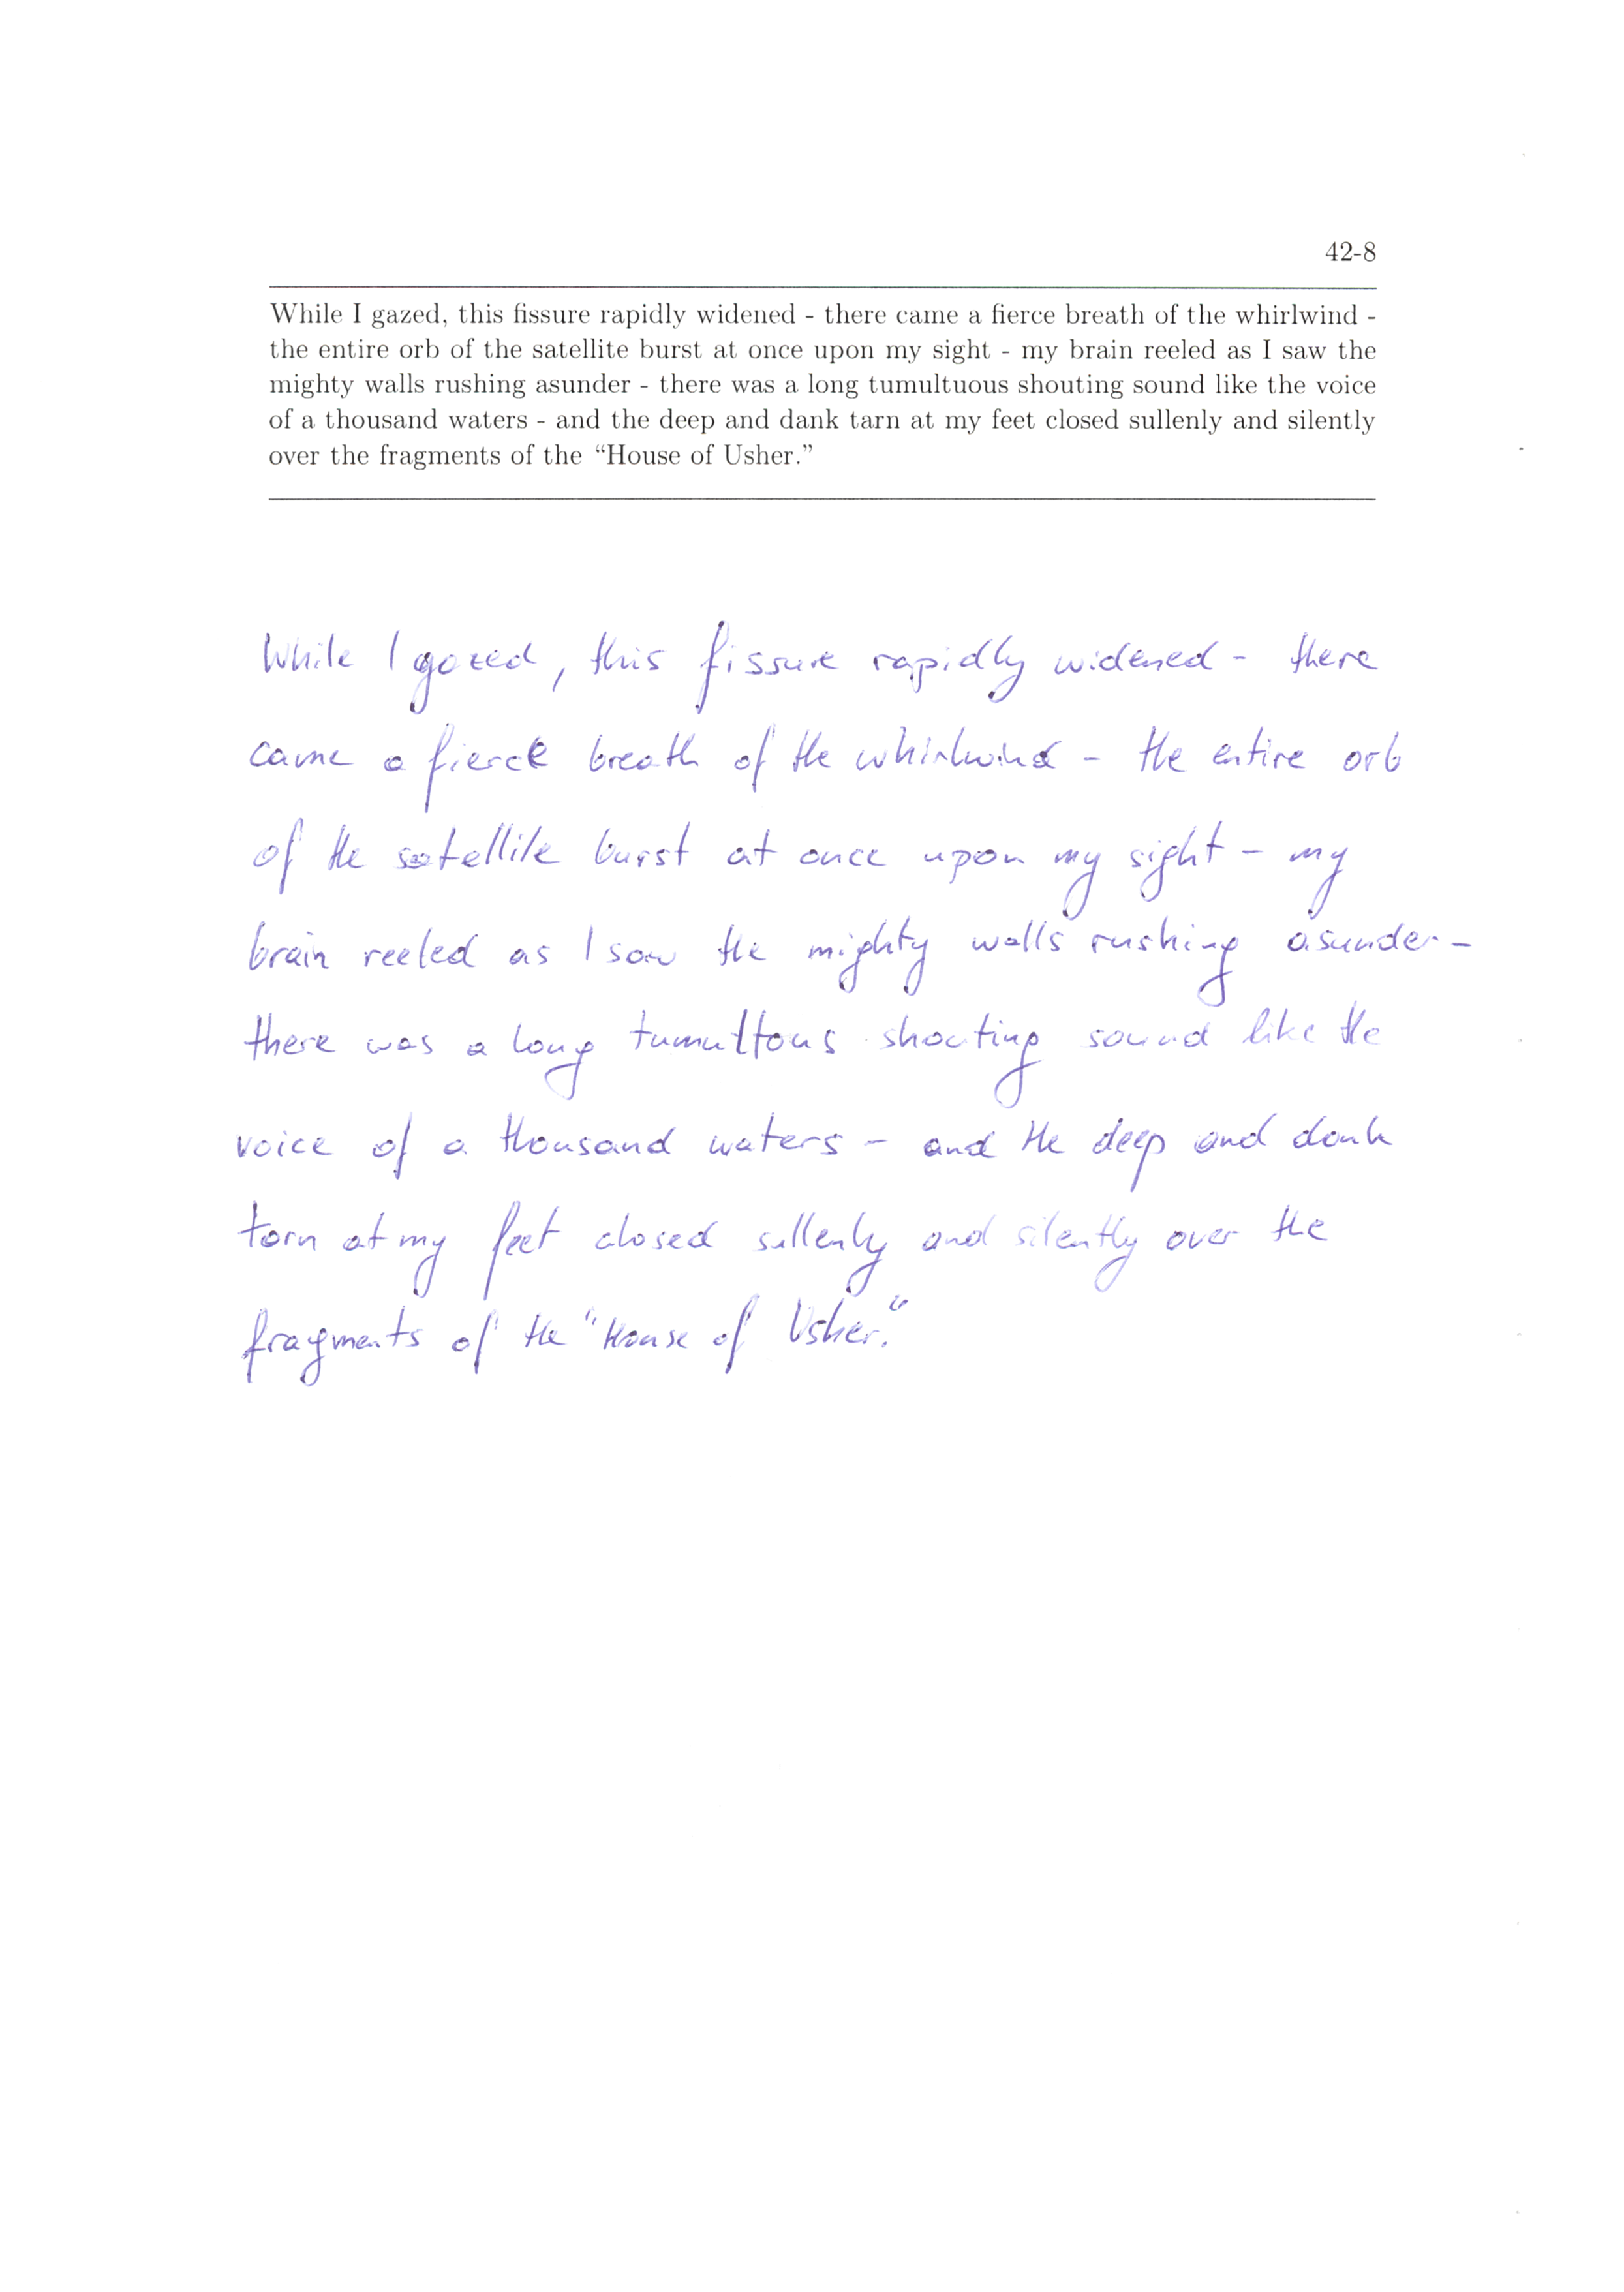 42-8
While I gazed, this fissure rapidly widened - there came a fierce breath of the whirlwind -
the entire orb of the satellite burst at once upon my sight - my brain reeled as I saw the
mighty walls rushing asunder - there was a long tumultuous shouting sound like the voice
of a thousand waters - and the deep and dank tarn at my feet closed sullenly and silently
over the fragments of the “House of Usher.”
While I gazed, this fissure rapidly widened - there
came a fierce breath of the whirlwind - the entire orb
of the satellite burst at once upon my sight - my
brain reeled as I saw the mighty walls rushing asunder -
there was a long tumultous shouting sound like the
voice of a thousand waters - and the deep and dank
tarn at my feet closed sullenly and silently over the
fragments of the "House of Usher."